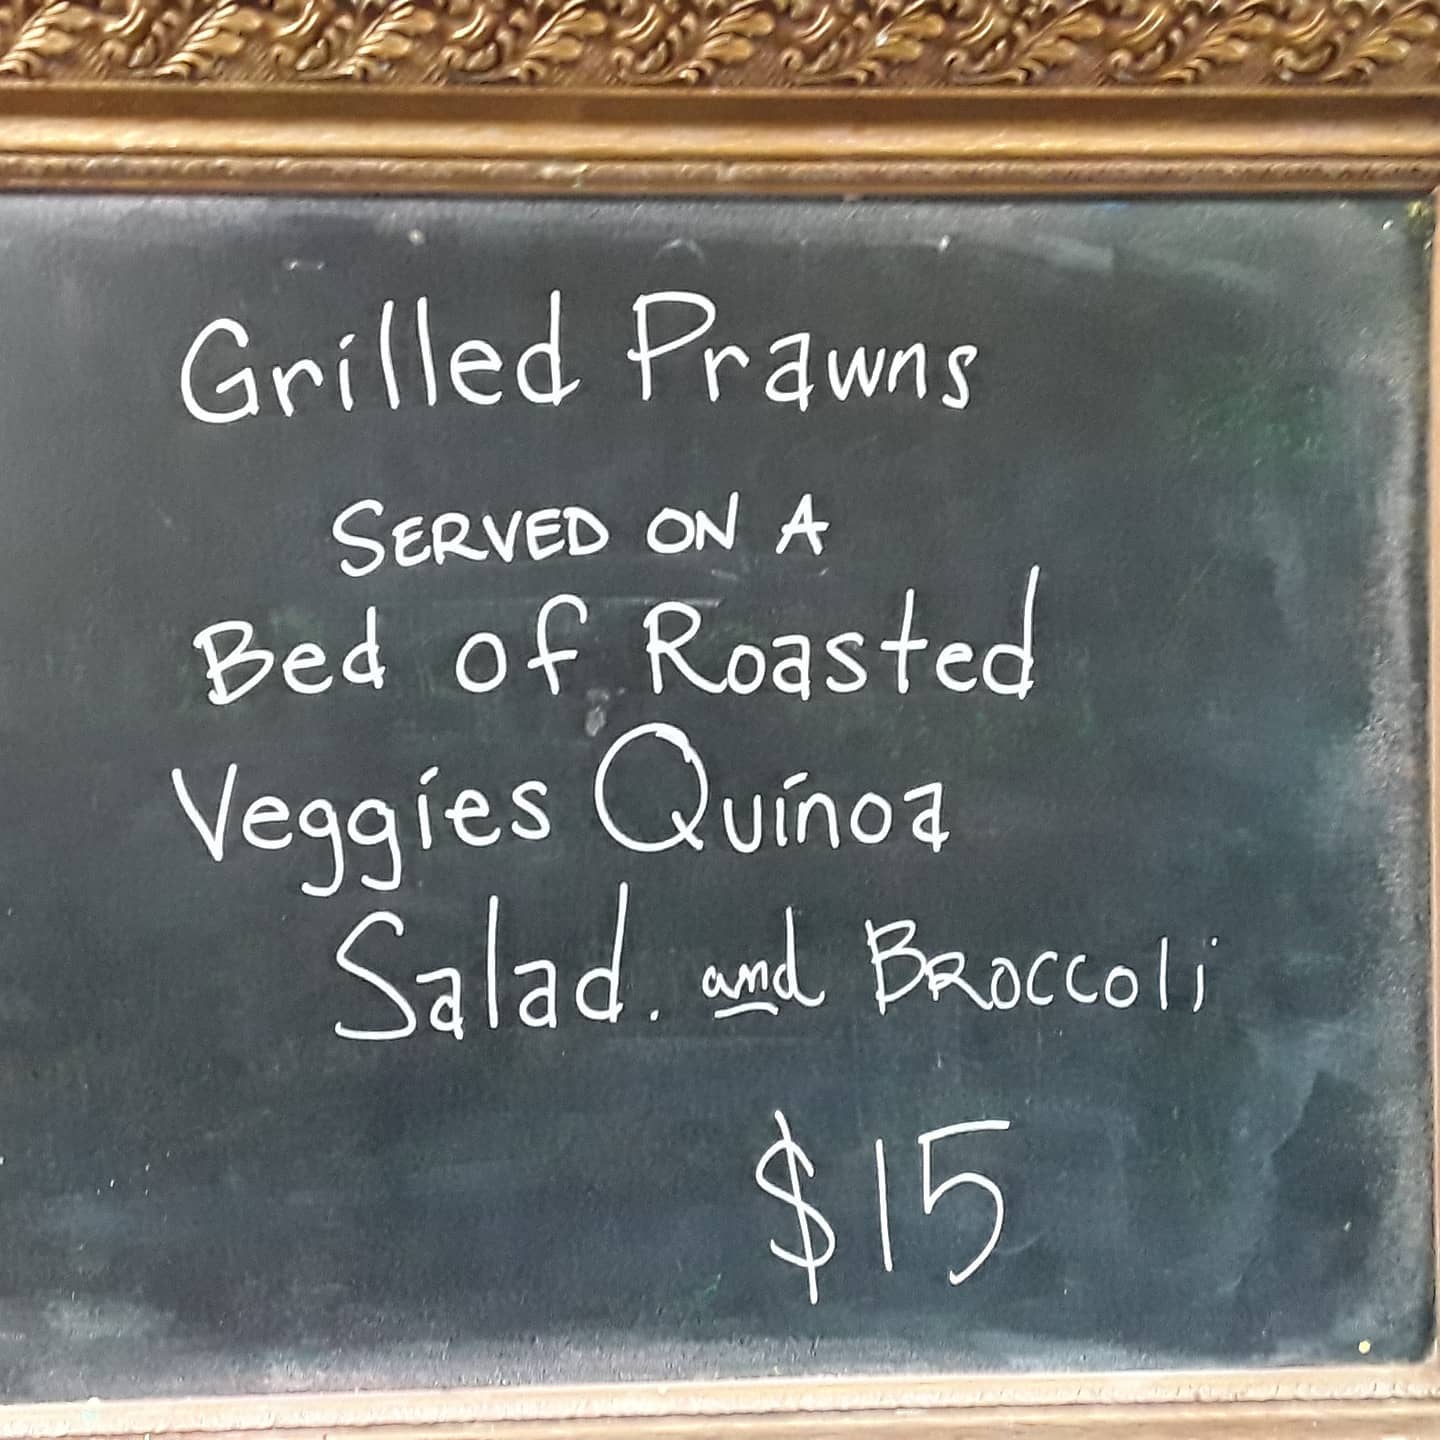 Grilled Prawns
SERVED ON A
Bed of Roasted
Veggies Quinoa
Salad. and BROCCOli
$15